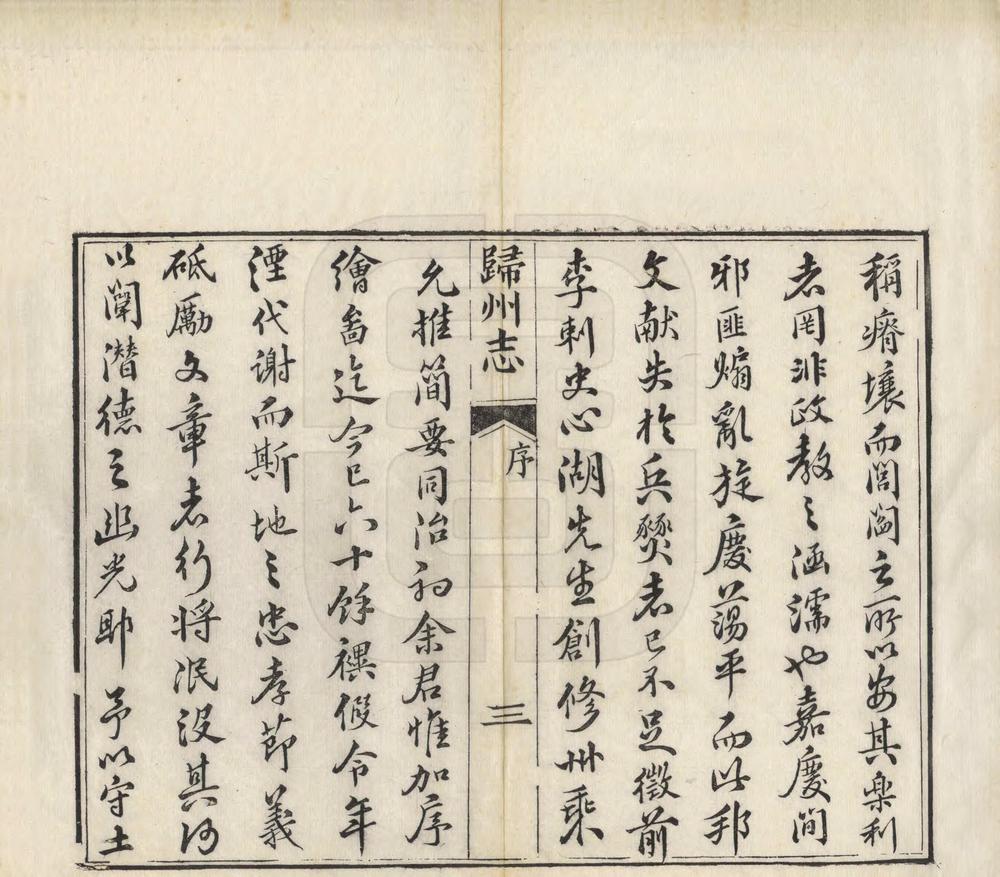 稱瘠壤而閭閻之所以安其樂利
者罔非政教之涵濡也嘉慶間
邪匪煽亂旋慶蕩平而此邦
文獻失於兵燹者已不足徵前
李刺史心湖先生創修州乘
歸州志 序 三
允推簡要同治初余君惟加序
繪啚迄今已六十餘禩假令年
湮代謝而斯地之忠孝節義
砥勵文章者行將泯沒其何
以闡潛德之幽光耶 予以守土